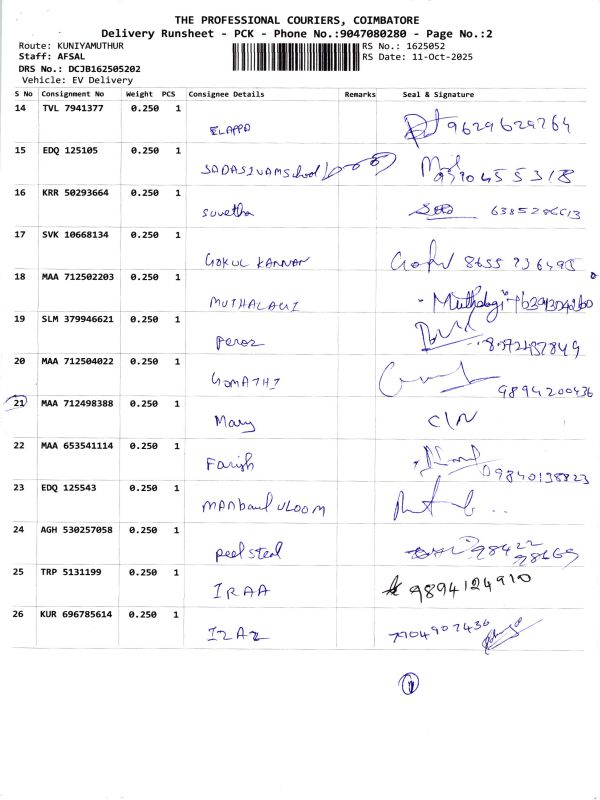 THE PROFESSIONAL COURIERS, COIMBATORE
Delivery Runsheet - PCK - Phone No.:9047080280 - Page No.:2
Route: KUNIYAMUTHUR RS No.: 1625052
Staff: AFSAL RS Date: 11-Oct-2025
DRS No.: DCJB162505202
Vehicle: EV Delivery
S No Consignment No Weight PCS Consignee Details Remarks Seal & Signature
14 TVL 7941377 0.250 1
ELAPPA 9629629764
15 EDQ 125105 0.250 1
SADASIVAM School
16 KRR 50293664 0.250 1
Suvetha 6385286613
17 SVK 10668134 0.250 1
GOKUL KANNAN
18 MAA 712502203 0.250 1
MUTHALAGI
19 SLM 379946621 0.250 1
Feroz
20 MAA 712504022 0.250 1
GOMATHI 9894200436
21 MAA 712498388 0.250 1
Mary C/N
22 MAA 653541114 0.250 1
Farish 09840138823
23 EDQ 125543 0.250 1
MANbaul ULOOM
24 AGH 530257058 0.250 1
peel steal
25 TRP 5131199 0.250 1
IRAA 9894124910
26 KUR 696785614 0.250 1
IZAZ 7904907436